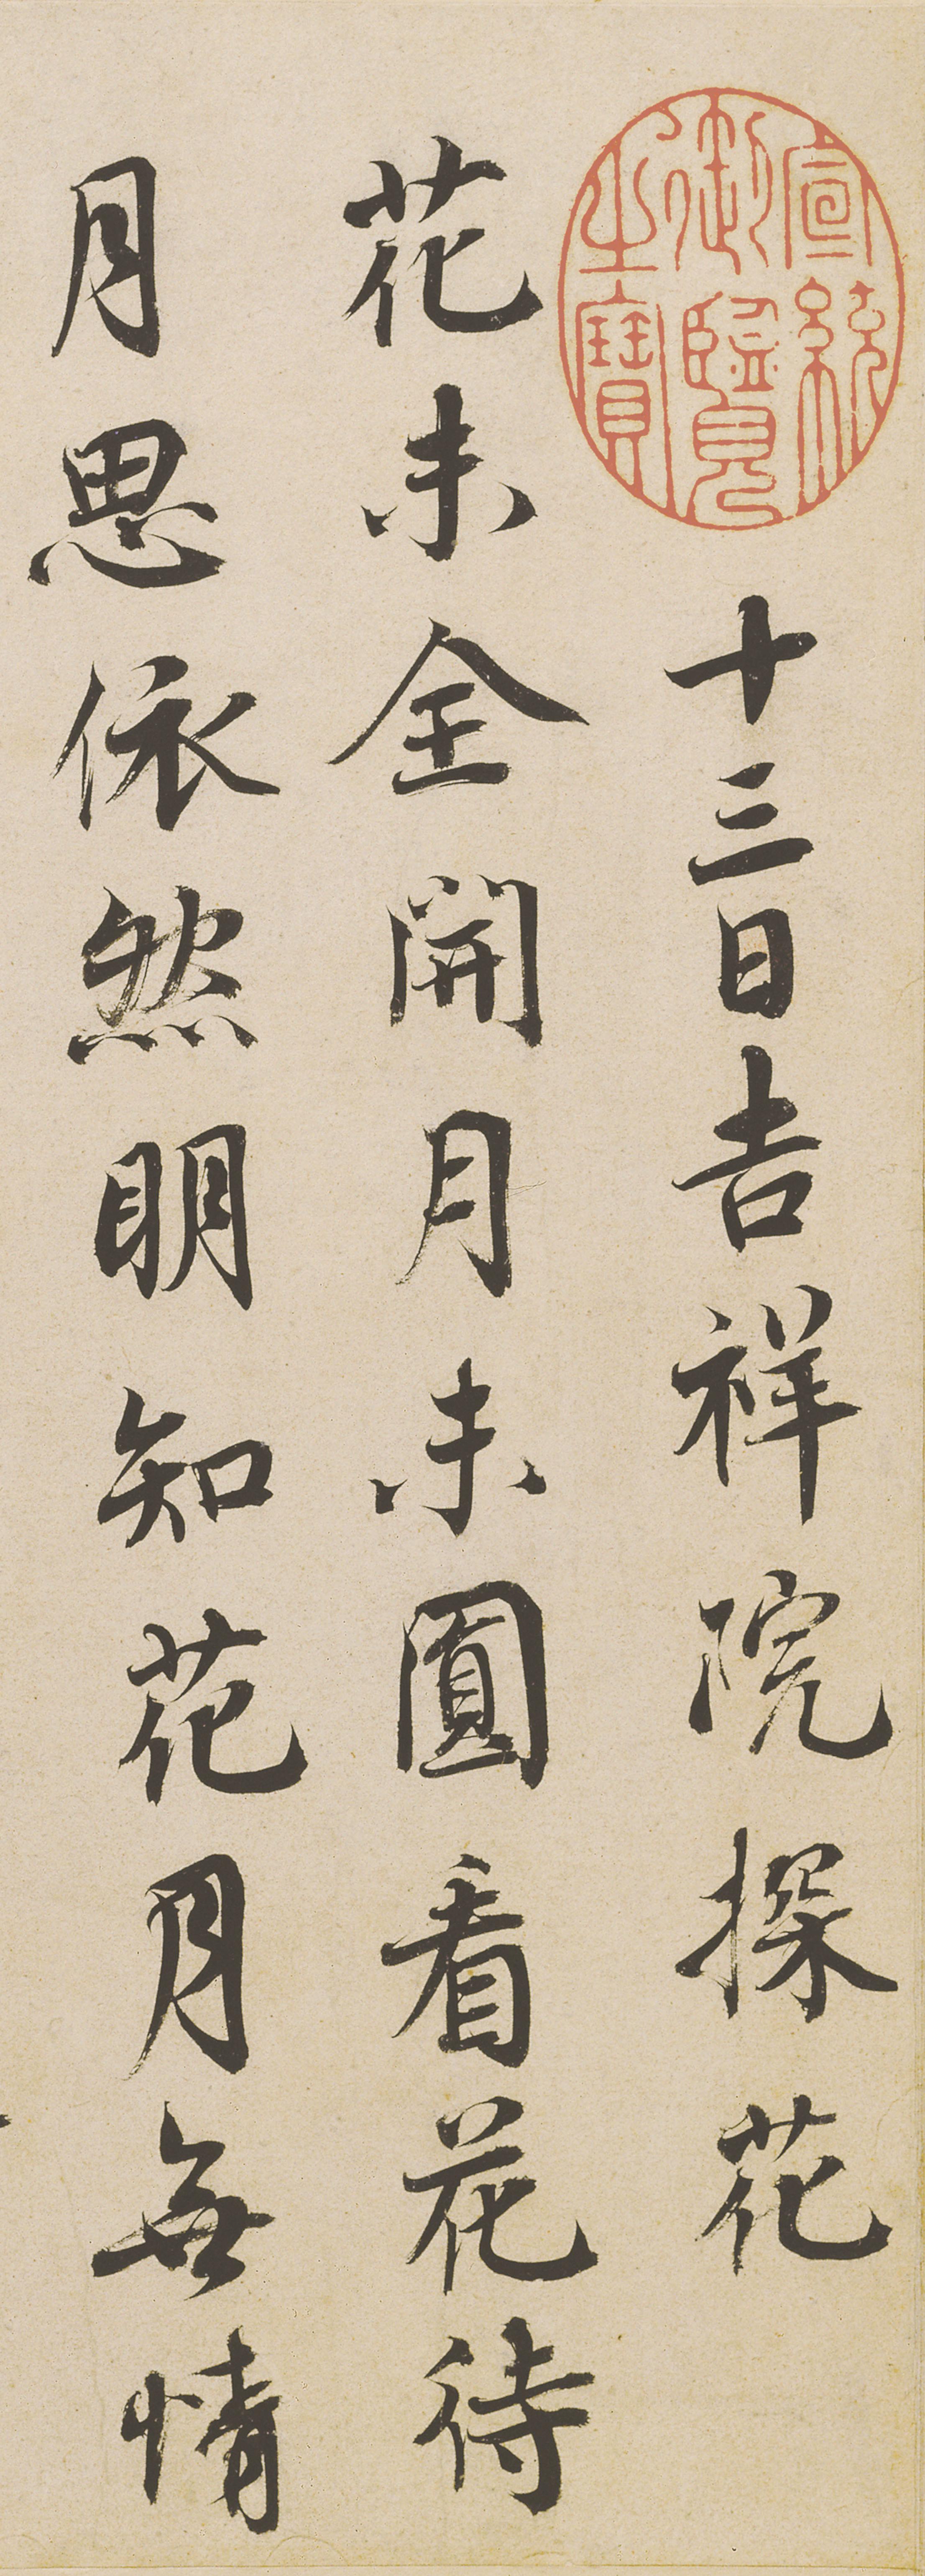 宣統
御覽
之寶
十三日吉祥院探花
花未全開月未圓看花待
月思依然明知花月無情